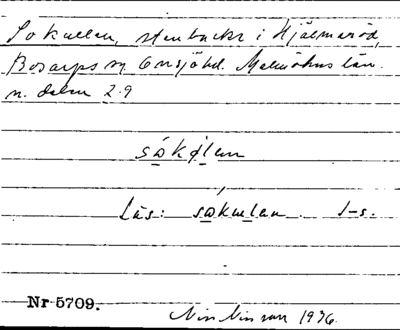 Sokullen, stenbacke i Hjälmaröd,
Bosarps sn Onsjöhd. Malmöhus län.
n. delen 2.9
sǫkølen
Läs: sokulen. I-s.
Nr 5709.
Nils Nilsson 1936.